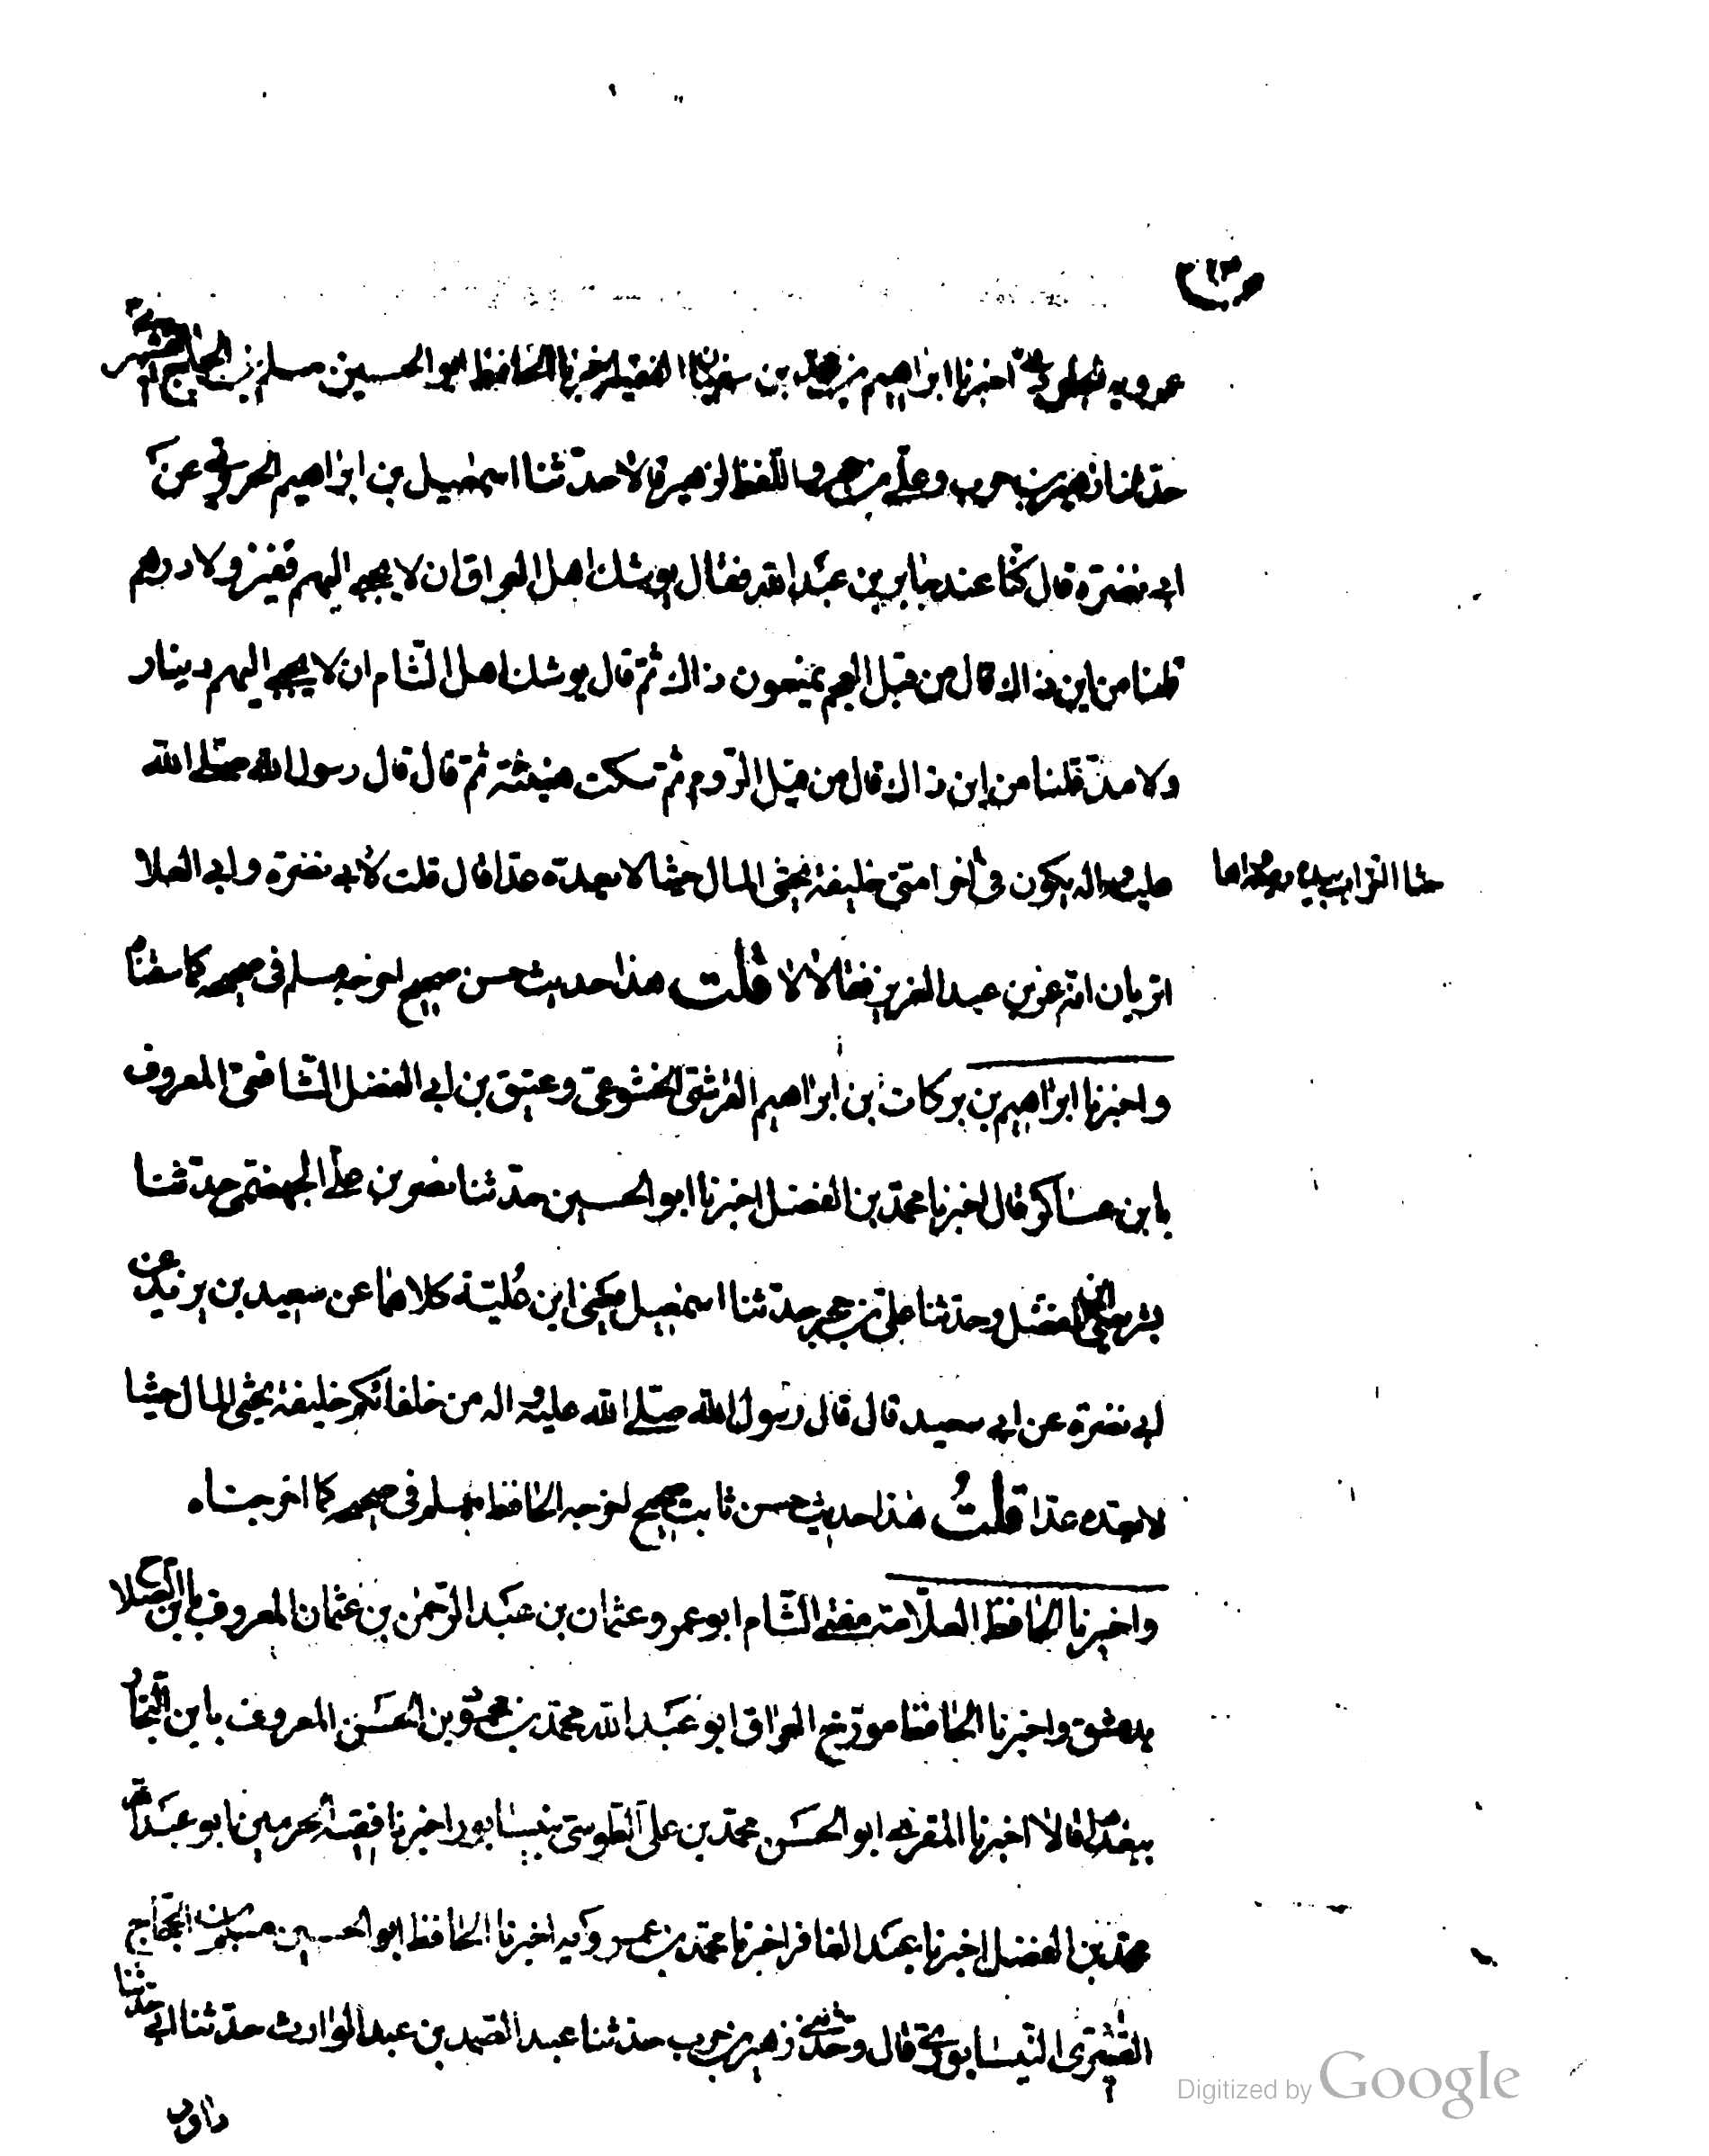 عمرويه الجلودي اخبرنا ابراهيم بن محمد بن سفيان الفقيه اخبرنا الحافظ ابو الحسين مسلم بن الحجاج القشيري
حدثنا زهير بن حرب وعلي بن حجر واللفظ لزهير قالا حدثنا اسمعيل بن ابراهيم الجريري عن
ابي نضرة قال كنا عند جابر بن عبد الله فقال يوشك اهل العراق ان لا يجبى اليهم قفيز ولا درهم
قلنا من اين ذاك قال من قبل العجم يمنعون ذاك ثم قال يوشك اهل الشام ان لا يجبى اليهم دينار
ولا مد قلنا من اين ذاك قال من قبل الروم ثم سكت هنيئة ثم قال قال رسول الله صلى الله
عليه واله يكون في آخر امتي خليفة يحثي المال حثيا لا يعده عدا قال قلت لابي نضرة وابي العلا
حثا التراب بيده
اتريان انه عمر بن عبد العزيز فقالا لا قلت هذا حديث حسن صحيح اخرجه مسلم في صحيحه كما سقناه
واخبرنا ابراهيم بن بركات بن ابراهيم القرشي الخشوعي وعتيق بن ابي الفضل الشافعي المعروف
بابن عساكر قال اخبرنا محمد بن الفضل اخبرنا ابو الحسين حدثنا نصر بن علي الجهضمي حدثنا
بشر يعني ابن المفضل وحدثنا علي بن حجر حدثنا اسمعيل يعني ابن علية كلاهما عن سعيد بن يزيد عن
ابي نضرة عن ابي سعيد قال قال رسول الله صلى الله عليه واله من خلفائكم خليفة يحثي المال حثيا
لا يعده عدا قلت هذا حديث حسن ثابت صحيح اخرجه الحافظ مسلم في صحيحه كما اخرجناه
واخبرنا الحافظ العلامة مفتي الشام ابو عمرو عثمان بن عبد الرحمن بن عثمان المعروف بابن الصلا
بدمشق واخبرنا الحافظ مورخ العراق ابو عبد الله محمد بن محمود بن الحسن المعروف بابن النجار
ببغداد قالا اخبرنا المقرئ ابو الحسن محمد بن علي الطوسي بنيسابور اخبرنا فقيه الحرمين ابو عبد الله
محمد بن الفضل اخبرنا عبد الغافر اخبرنا محمد بن عمرويه اخبرنا الحافظ ابو الحسين مسلم بن الحجاج
القشيري النيسابوري قال وحدثني زهير بن حرب حدثنا عبد الصمد بن عبد الوارث حدثنا ابي حدثنا
داود
Digitized by Google